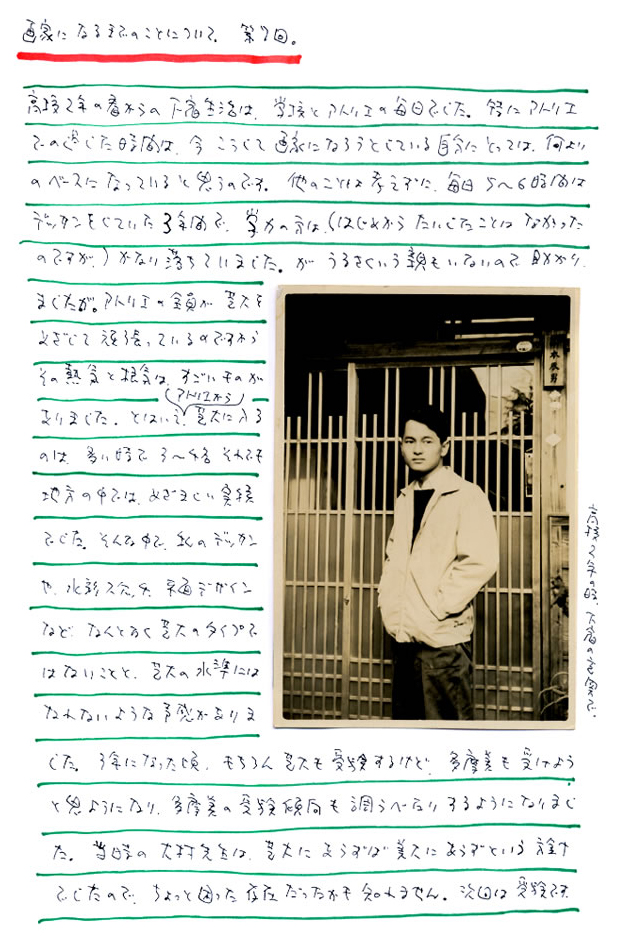 画家になるまでのことについて。 第7回。
高校2年の春からの下宿生活は、学校とアトリエの毎日でした。特にアトリエ
での過ごした時間は、今こうして画家になろうとしている自分にとっては、何より
のベースになっていると思うのです。他のことは考えずに、毎日5〜6時間は
デッサンをしていた3年間で、学力の方は、(はじめからたいしたことはなかった
のですが、)かなり落ちていました。が うるさくいう親もいないので助かり
ましたが。アトリエの全員が芸大を
めざして頑張っているのですから
その熱気と根気は、すごいものが
ありました。とはいえ、アトリエから芸大に入る
のは、多い時で3〜4名 それでも
地方の中では、めざましい実績
でした。そんな中で、私のデッサン
や、水彩、平面デザイン
など なんとなく芸大のタイプで
はないことと、芸大の水準には
なれないような予感がありま
した。3年になった頃、もちろん芸大も受験するけど、多摩美も受けよう
と思うようになり、多摩美の受験傾向も調べたりするようになりまし
た。当時の大村先生は、芸大にあらずば美大にあらずという方針
でしたので、ちょっと困った存在だったかも知れません。次回は受験です。
高校2年の時、下宿の玄関で。